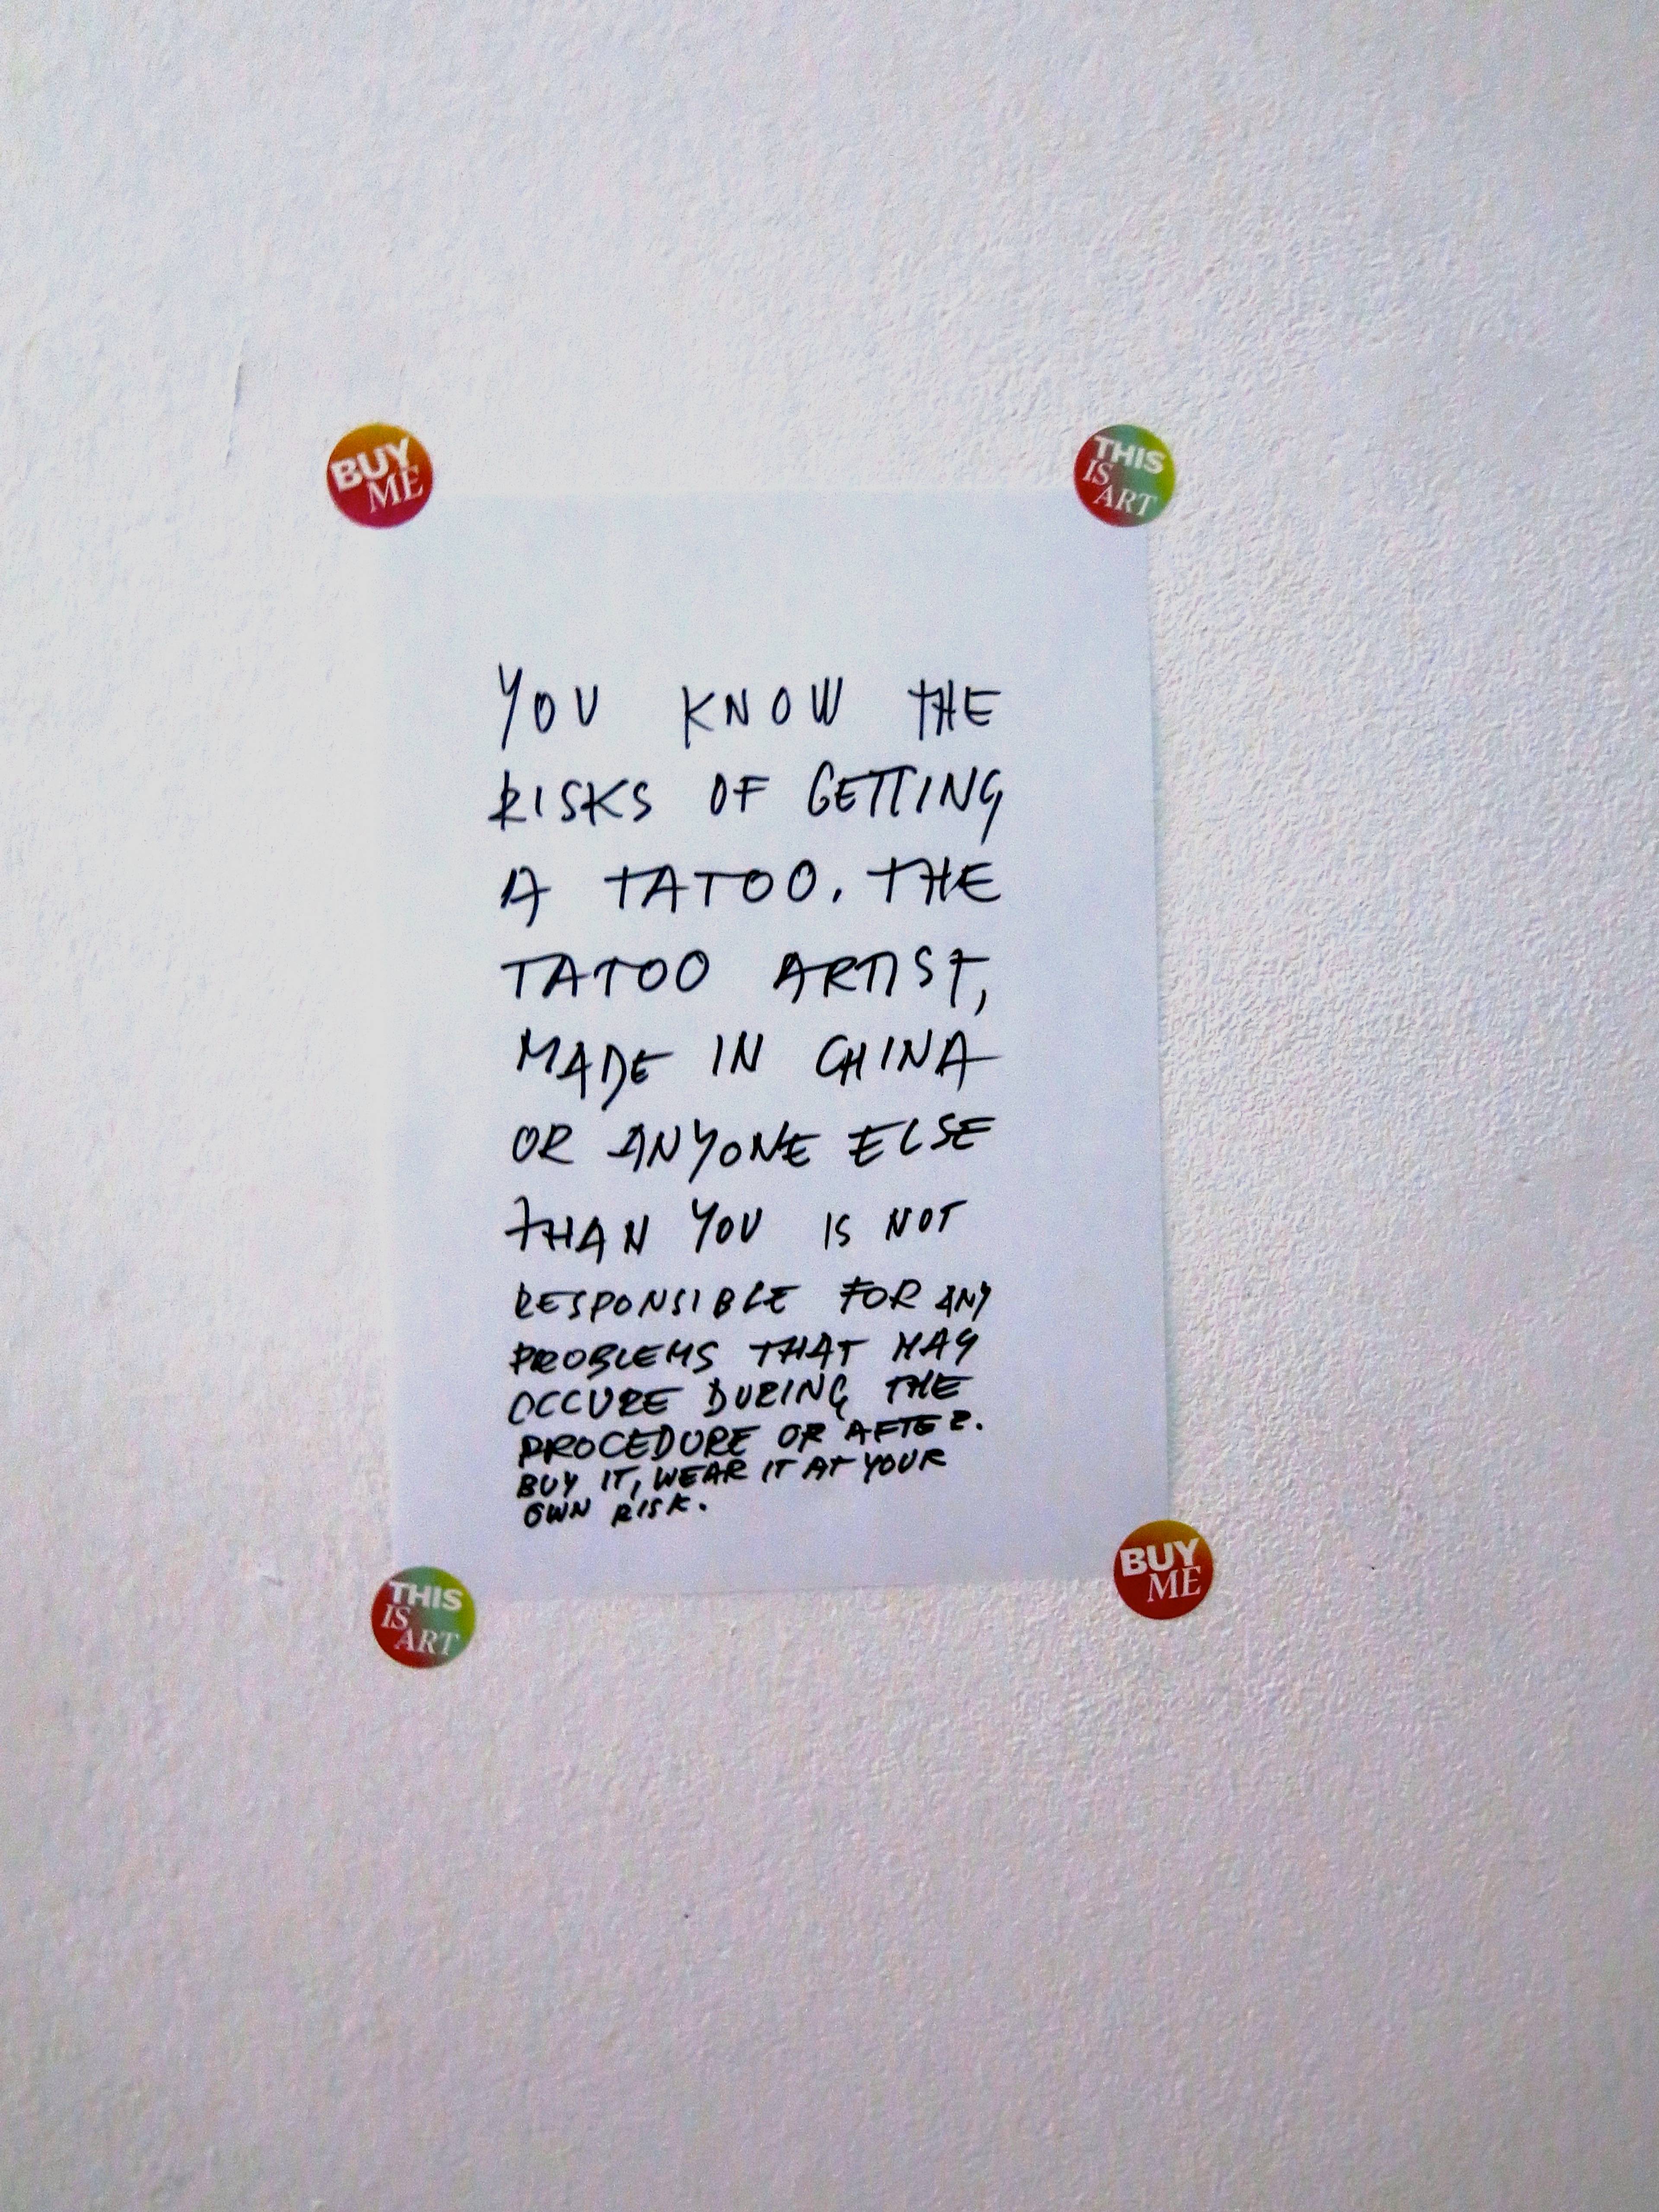 BUY
ME
THIS
IS
ART
YOU KNOW THE
RISKS OF GETTING
A TATOO. THE
TATOO ARTIST,
MADE IN CHINA
OR ANYONE ELSE
THAN YOU IS NOT
RESPONSIBLE FOR ANY
PROBLEMS THAT MAY
OCCURE DURING THE
PROCEDURE OR AFTER.
BUY IT, WEAR IT AT YOUR
OWN RISK.
THIS
IS
ART
BUY
ME